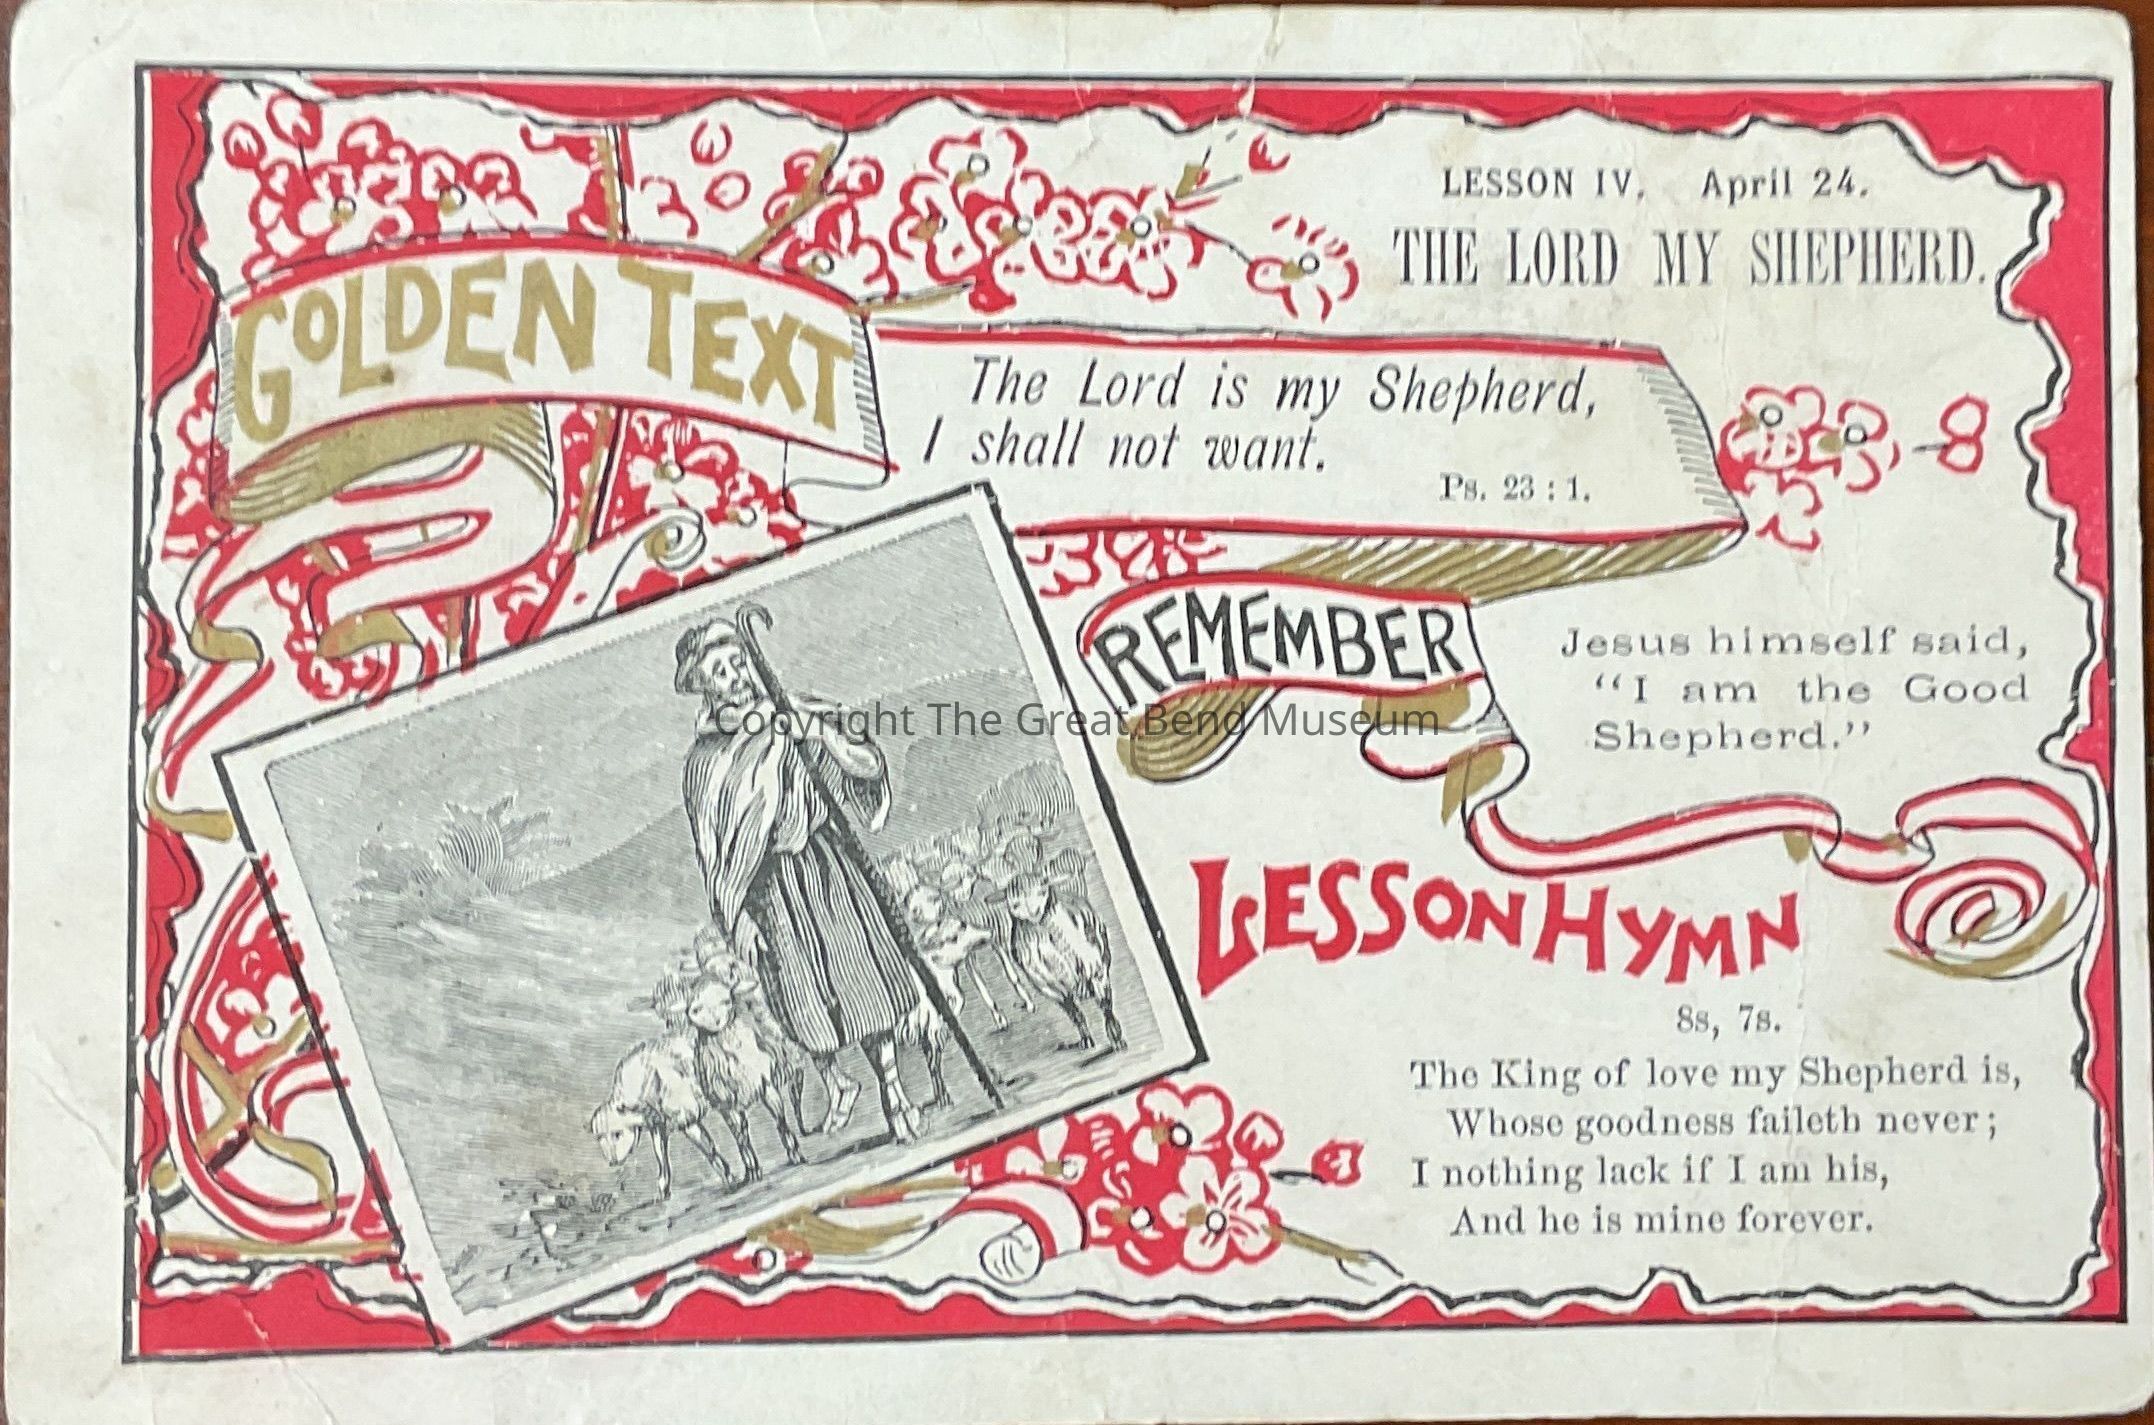 LESSON IV. April 24.
THE LORD MY SHEPHERD.
GOLDEN TEXT
The Lord is my Shepherd,
I shall not want.
Ps. 23 : 1.
REMEMBER
Jesus himself said,
“I am the Good
Shepherd.”
Copyright The Great Bend Museum
LESSON HYMN
8s, 7s.
The King of love my Shepherd is,
Whose goodness faileth never;
I nothing lack if I am his,
And he is mine forever.